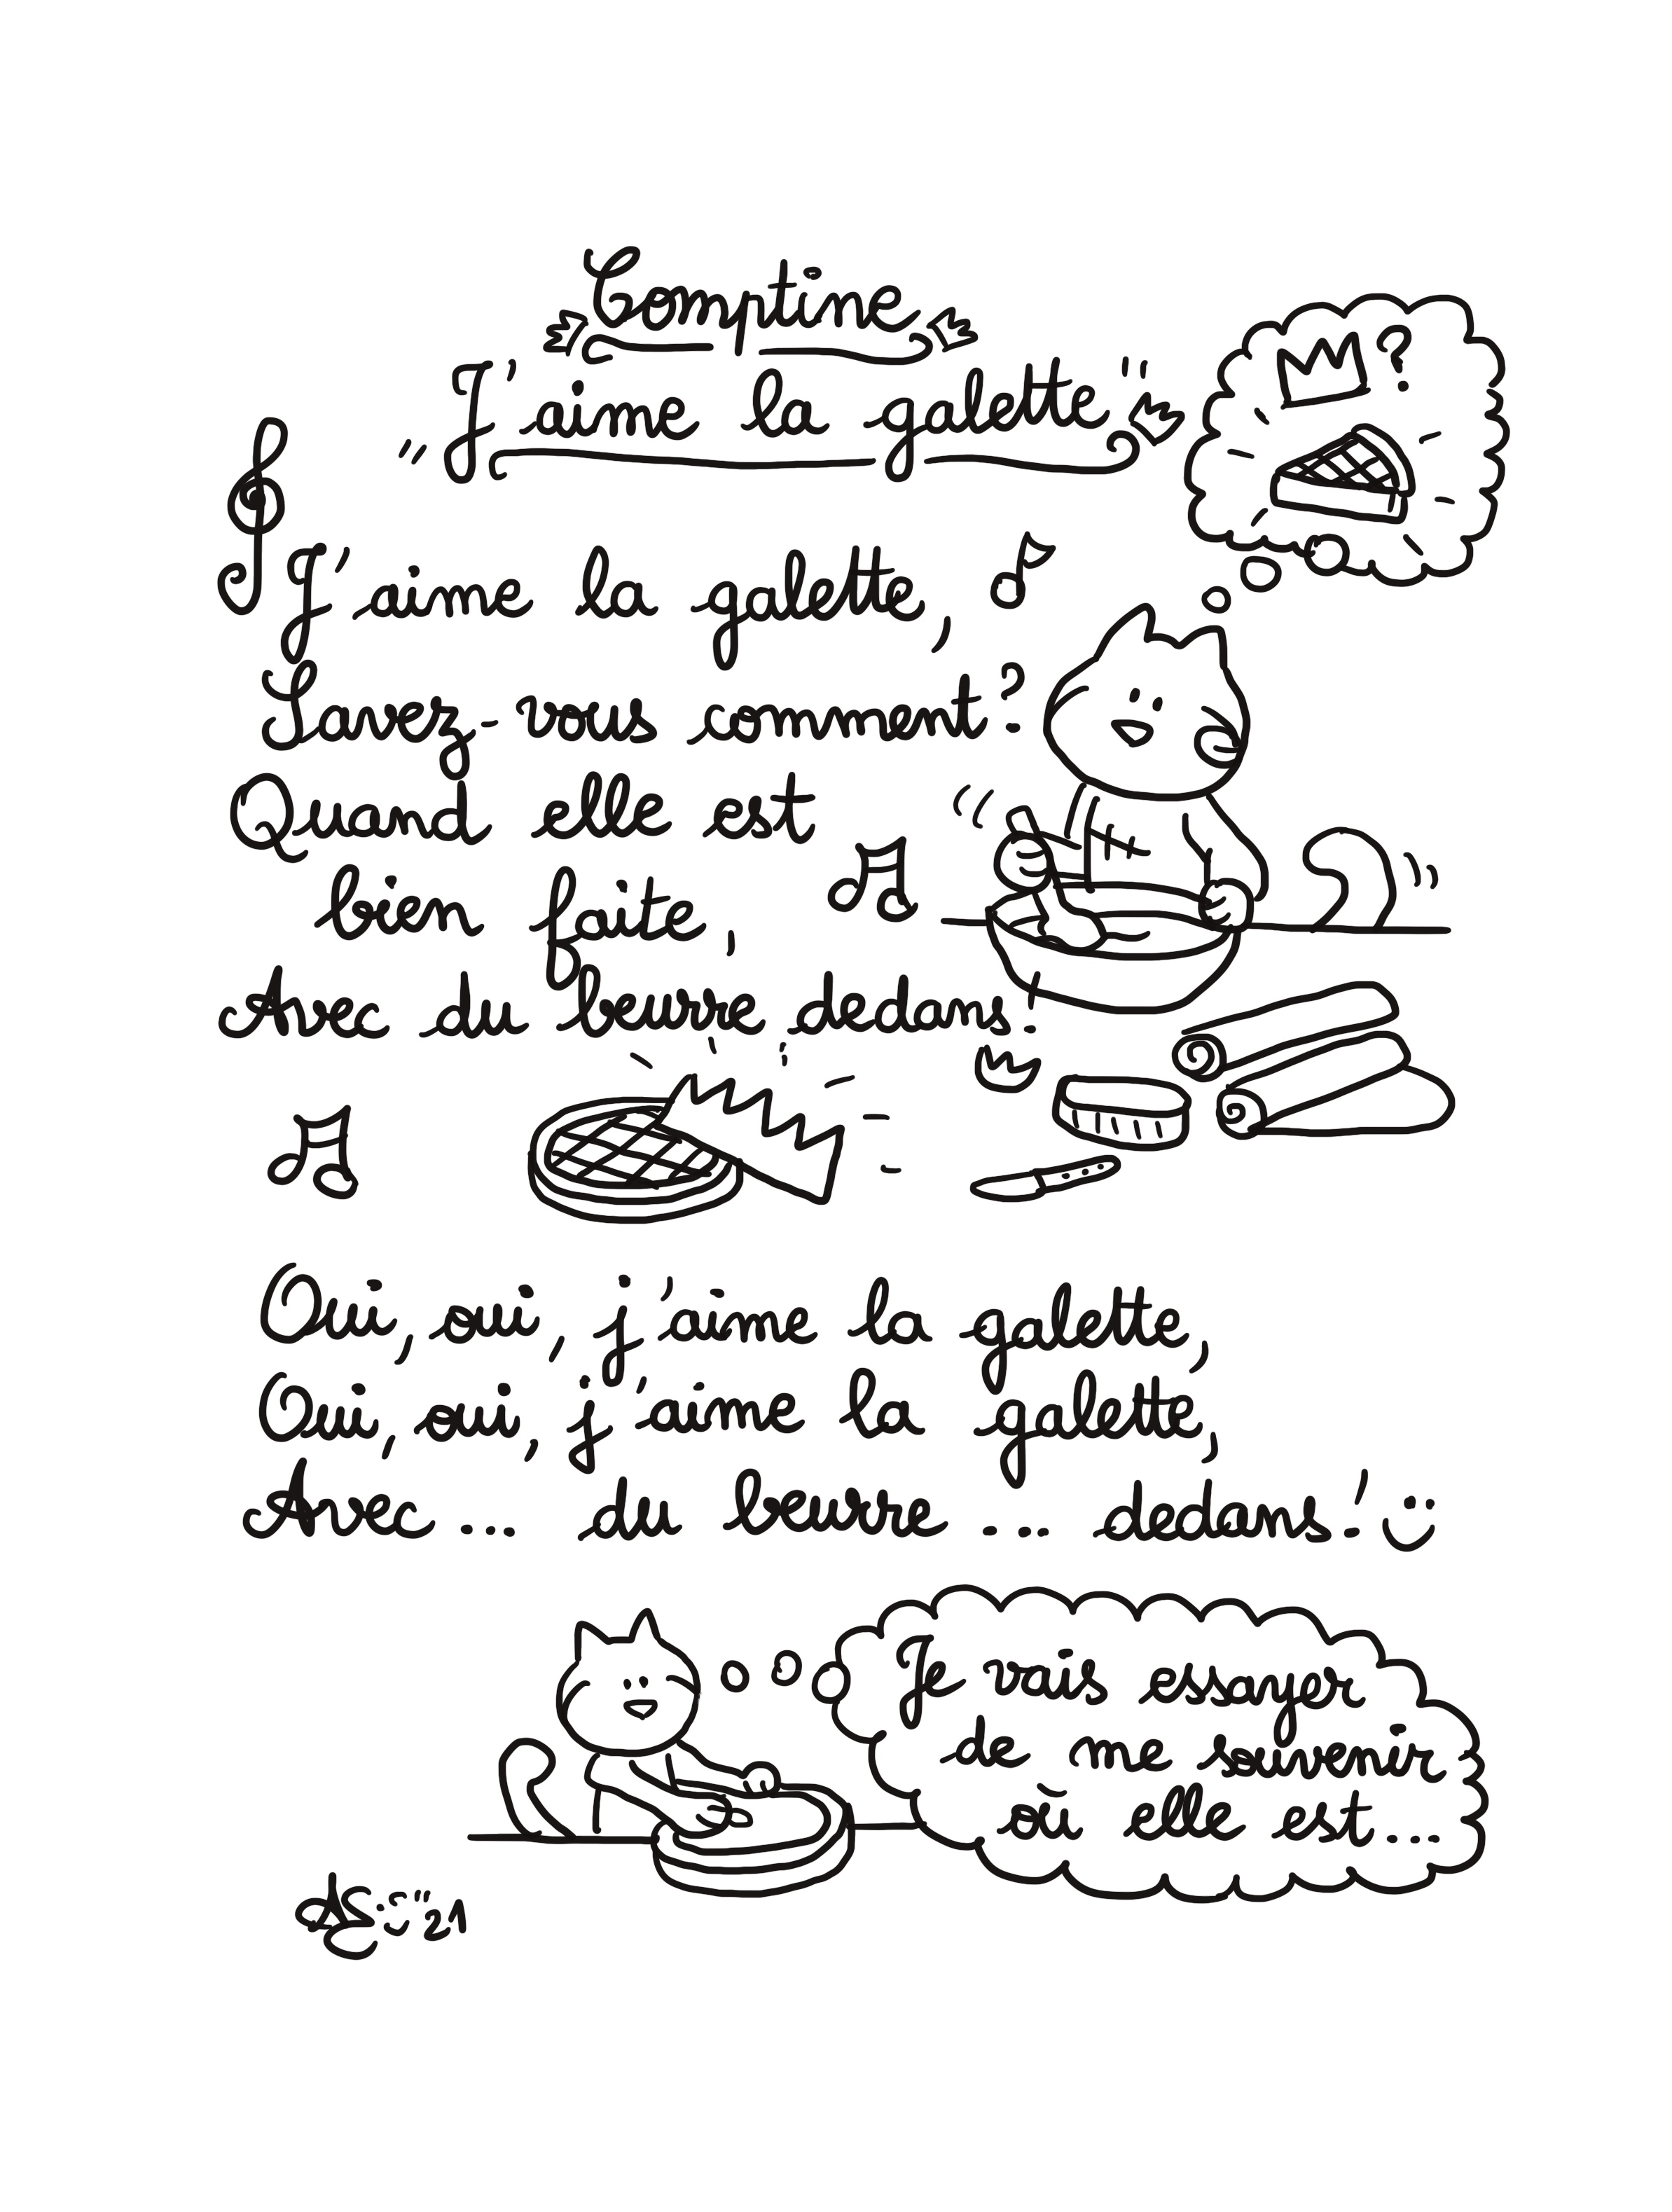 Comptine
"J'aime la galette"
?
J'aime la galette,
Savez-vous comment?
Quand elle est
bien faite,
Avec du beurre dedans!
Oui, oui, j'aime la galette,
Oui, oui, j'aime la galette,
Avec ... du beurre ... dedans!
Je vais essayer
de me souvenir
où elle est...
'21